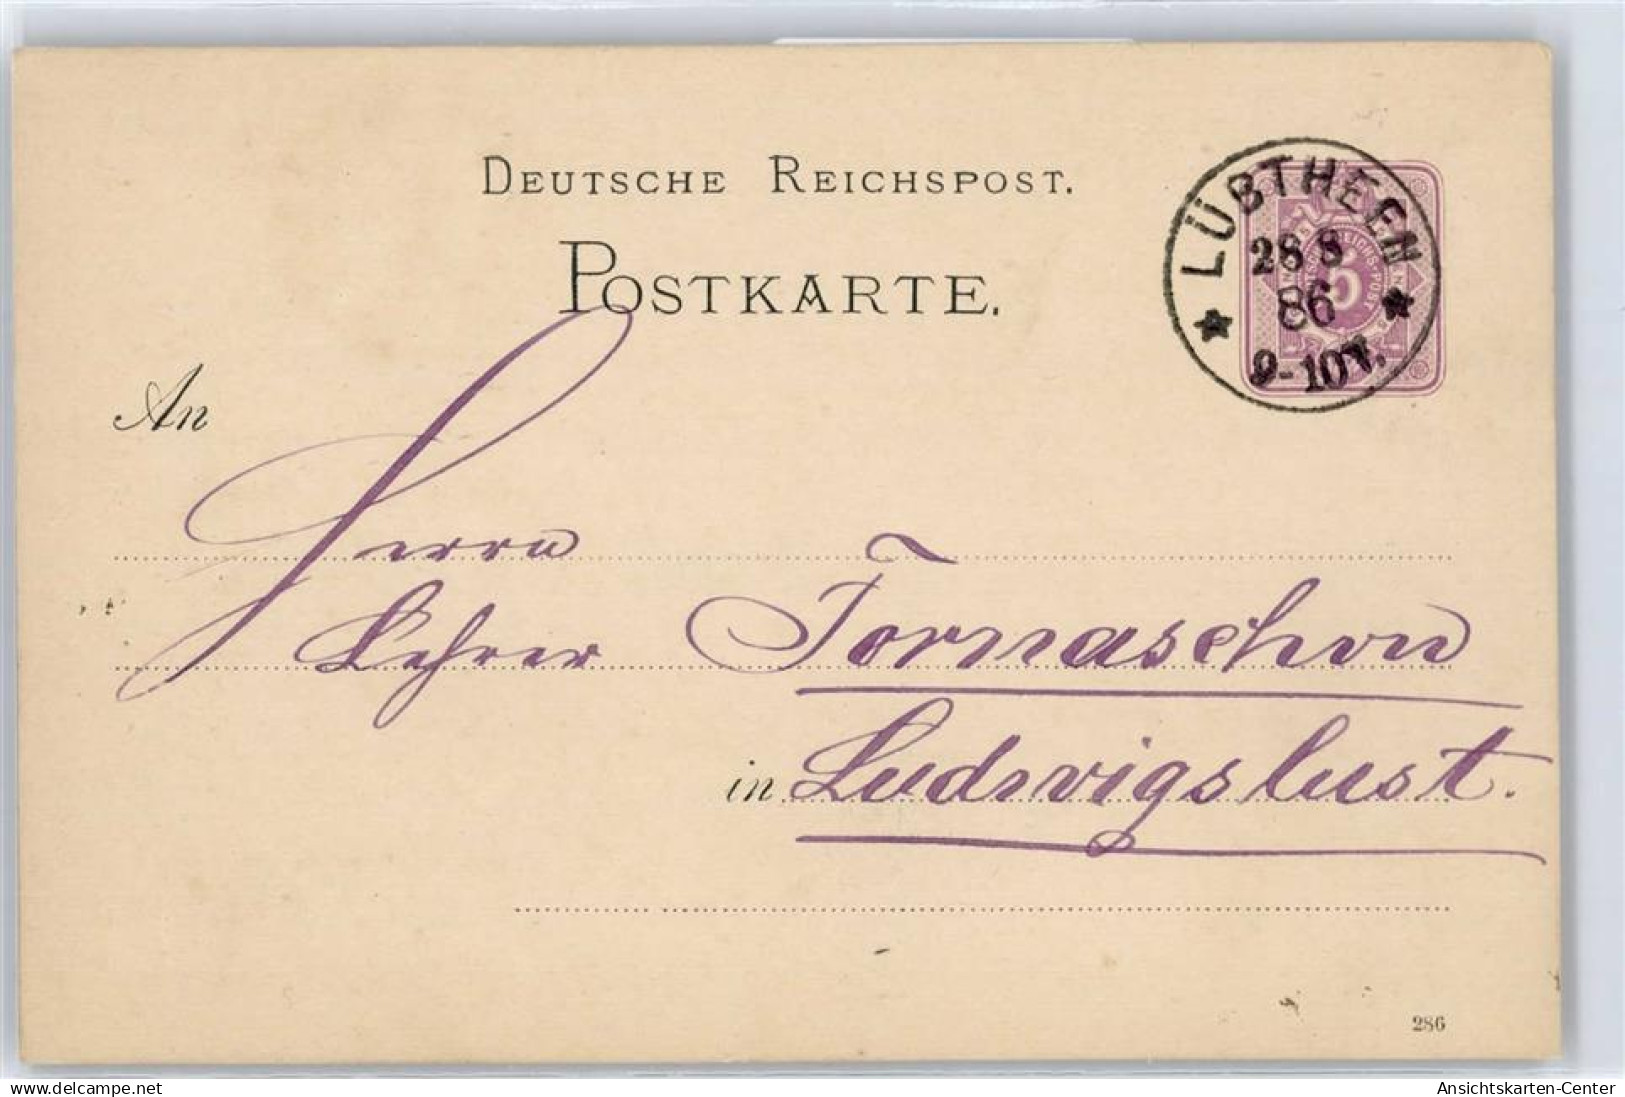 DEUTSCHE REICHSPOST.
POSTKARTE.
LÜBTHEEN
28 8
86
9-10V.
5
An
Herrn
Lehrer Tornaschow
in Ludwigslust.
286
Ansichtskarten-Center